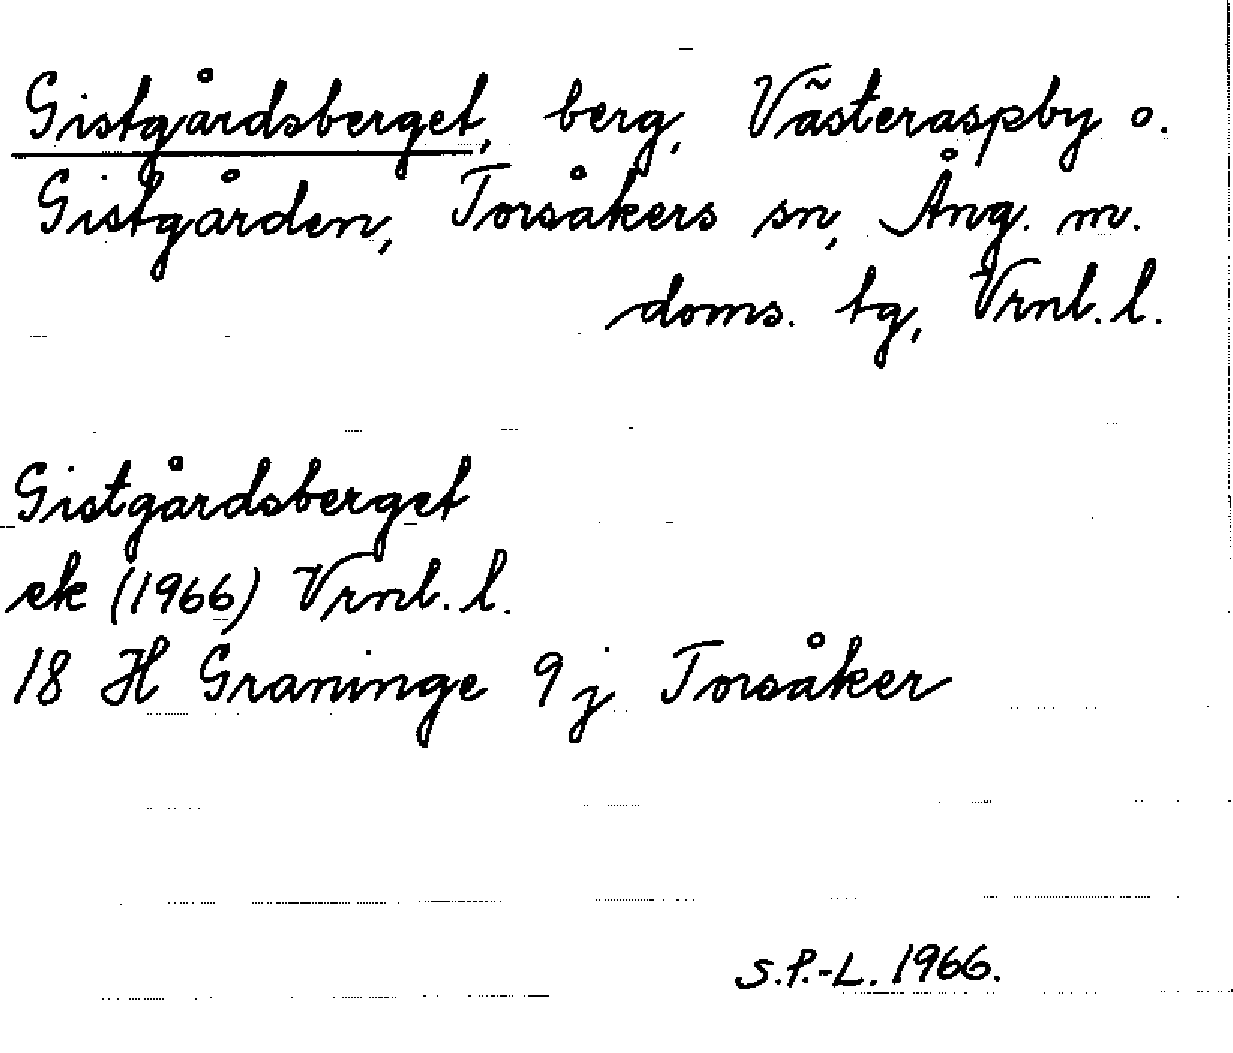 Gistgårdsberget, berg, Västeraspby o.
Gistgården, Torsåkers sn, Ång. m.
doms. tg, Vrnl. l.
Gistgårdsberget
ek (1966) Vrnl. l.
18 H Graninge 9 j Torsåker
S.P.-L. 1966.